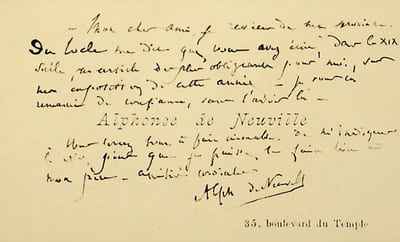 — Mon cher ami je reviens de ma province.
Du Locle me dit que vous avez écrit, dans le XIX
siècle un article des plus obligeants pour moi, sur
mon exposition de cette année — je vous en
remercie de confiance, sans l'avoir lu —
Alphonse de Neuville
Vous seriez tout à fait aimable de m'indiquer
le No, pour que je puisse le faire lire à
mon père — amitiés cordiales
Alph de Neuville
35, boulevard du Temple